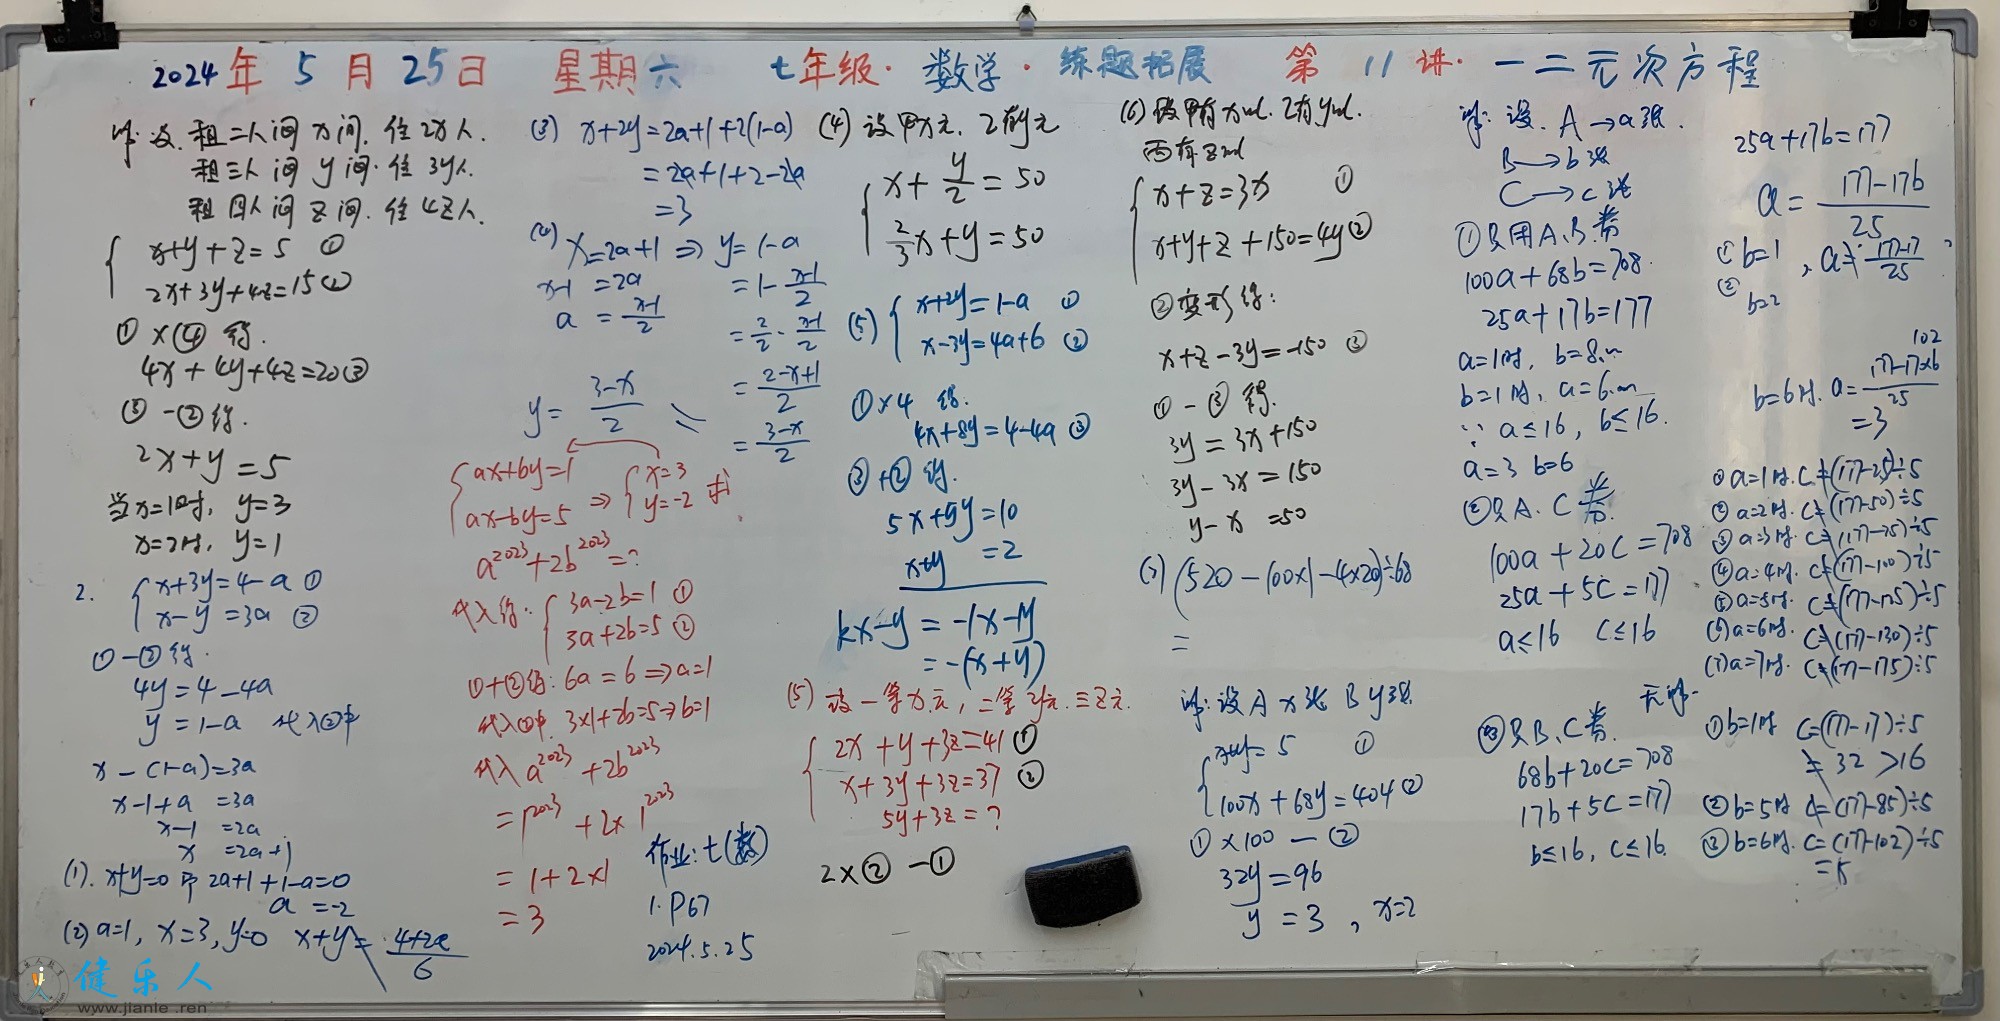 2024年5月25日 星期六 七年级·数学·练题拓展 第11讲·一二元次方程
解:设.租二人间x间.住2x人.
租三人间y间.住3y人.
租四人间z间.住4z人.
x+y+z=5 ①
2x+3y+4z=15②
①×④得.
4x+4y+4z=20③
③-②得.
2x+y=5
当x=1时,y=3
x=2时,y=1
2. x+3y=4-a ①
x-y=3a ②
①-②得.
4y=4-4a
y=1-a 代入②中
x-(1-a)=3a
x-1+a=3a
x-1=2a
x=2a+1
(1).x+y=0即2a+1+1-a=0
a=-2
(2)a=1,x=3,y=0 x+y=4+2a/6
(3) x+2y=2a+1+2(1-a)
=2a+1+2-2a
=3
(4) x=2a+1⇒y=1-a
x-1=2a =1-x-1/2
a=x-1/2 =2/2-x-1/2
=2-x+1/2
y=3-x/2 =3-x/2
ax+by=1
ax-by=5 ⇒ x=3
y=-2
a²⁰²³+2b²⁰²³=?
代入得. 3a-2b=1 ①
3a+2b=5 ②
①+②得:6a=6⇒a=1
代入②中 3×1+2b=5→b=1
代入a²⁰²³+2b²⁰²³
=1²⁰²³+2×1²⁰²³
=1+2×1
=3
作业:七(数)
1.P67
2024.5.25
(4)设甲x元.乙有y元
x+y/2=50
2/3x+y=50
(5) x+2y=1-a ①
x-3y=4a+6 ②
①×4 得.
4x+8y=4-4a ③
③+②得.
5x+5y=10
x+y=2
kx-y=-1x-1y
=-(x+y)
(5)设一等x元,二等y元.三z元.
2x+y+3z=41①
x+3y+3z=37②
5y+3z=?
2×②-①
(6)设甲有xml.乙有yml.
丙有zml
x+z=3x ①
x+y+z+150=4y②
②变形得:
x+z-3y=-150③
①-③得.
3y=3x+150
3y-3x=150
y-x=50
(7)(520-100×1-4×20)÷68
=
解:设A x张 B y张
x+y=5 ①
100x+68y=404②
①×100-②
32y=96
y=3,x=2
解:设.A→a张.
B→b张
C→c张
①只用A、B.类
100a+68b=708.
25a+17b=177
a=1时,b=8.…
b=1时,a=6.…
∵a≤16,b≤16.
a=3 b=6
②只A.C类.
100a+20c=708
25a+5c=177
a≤16 c≤16
③只B、C类.
68b+20c=708
17b+5c=177
b≤16,c≤16.
25a+17b=177
a=177-17b/25
①b=1,a≠177-17/25
②b=2
102
b=6时.a=177-17×6/25
=3
①a=1时.c≠(177-25)÷5
②a=2时.c≠(177-50)÷5
③a=3时.c≠(177-75)÷5
④a=4时.c≠(177-100)÷5
⑤a=5时.c≠(177-125)÷5
(6)a=6时.c≠(177-130)÷5
(7)a=7时.c≠(177-175)÷5
无解
①b=1时 c=(177-17)÷5
=32>16
②b=5时 c≠(177-85)÷5
③b=6时.c=(177-102)÷5
=15
健乐人
www.jianle.ren